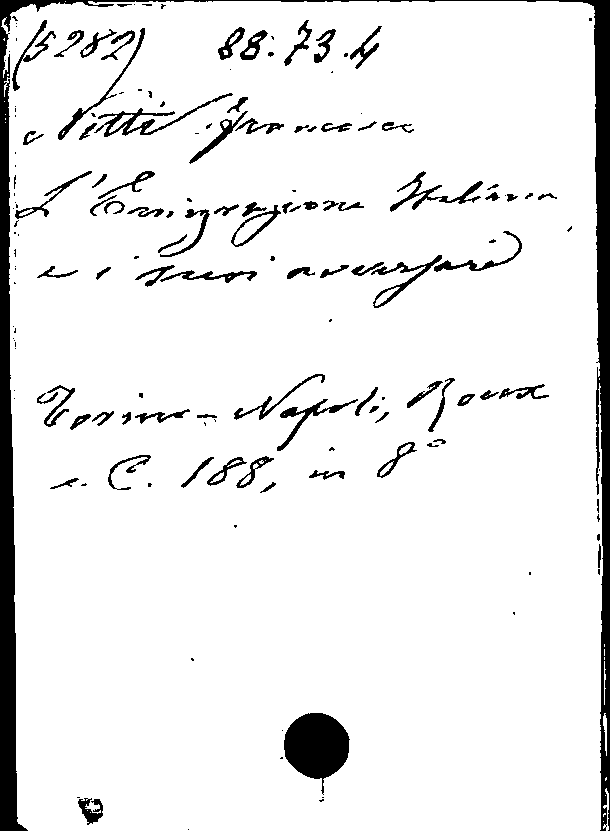 (5282) 88.73.4
Nitti Francesco
L'Emigrazione Italiana
e i suoi avversari
Torino - Napoli, Roux
e. C. 188, in 8°